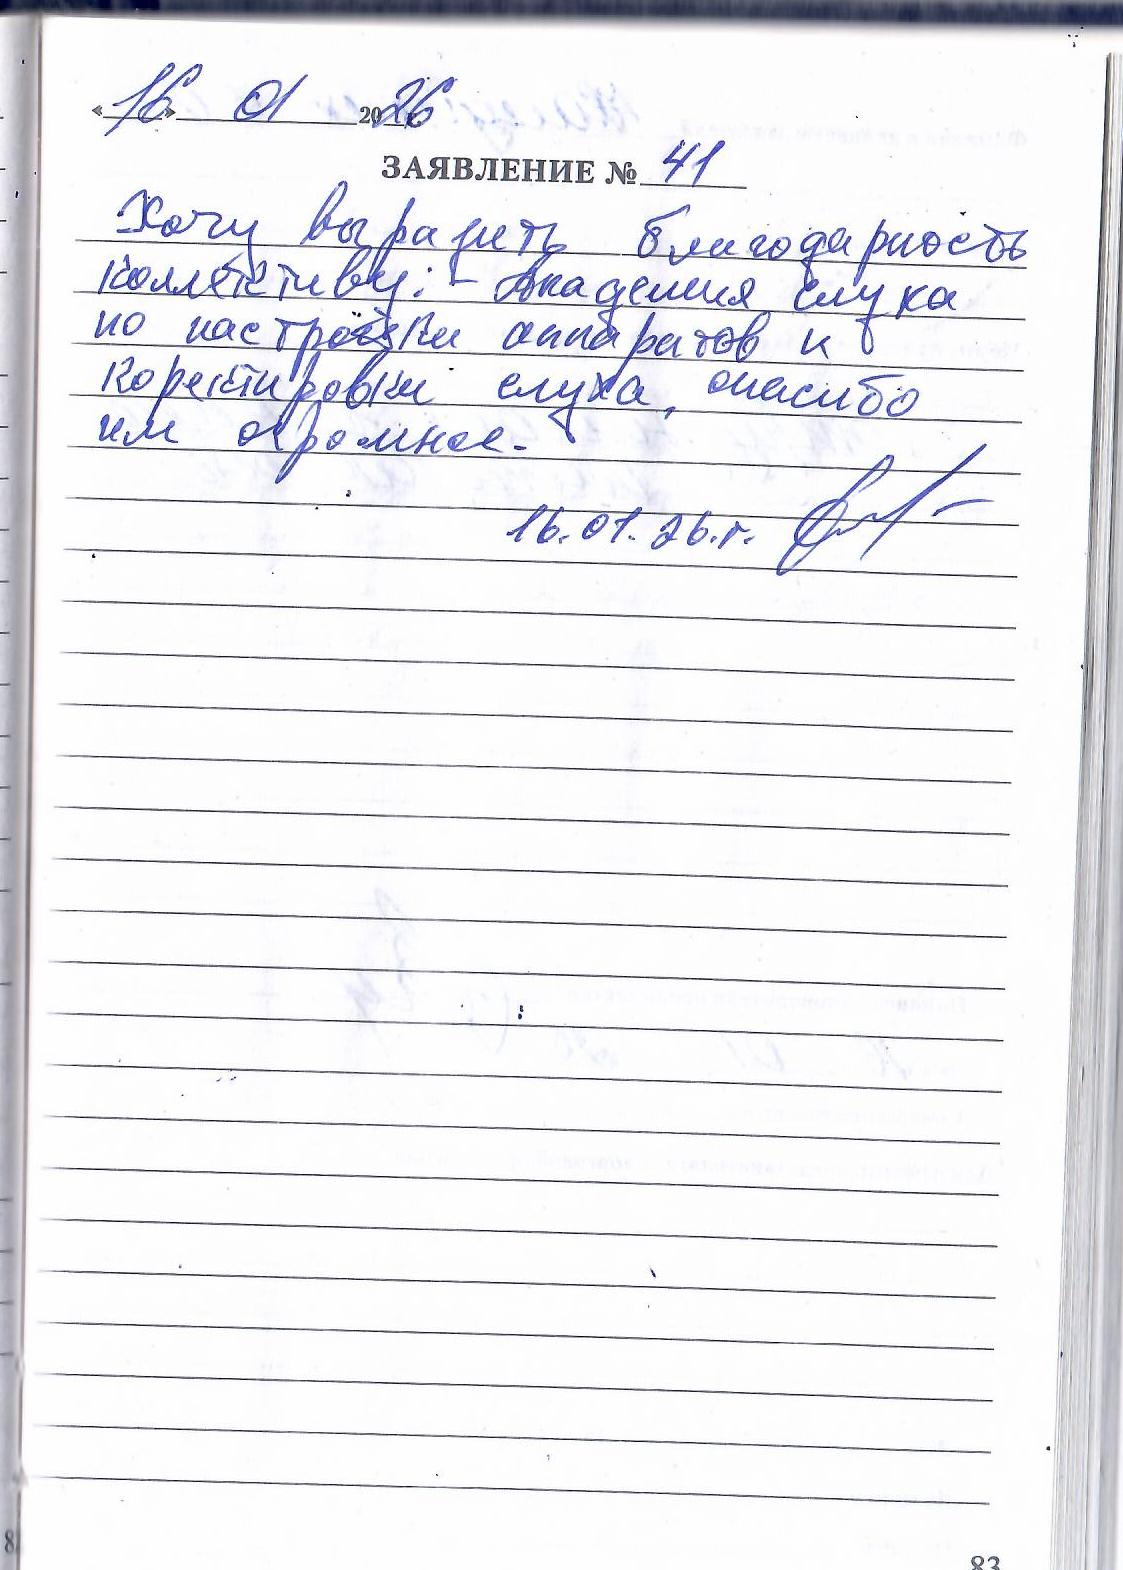 «16» 01 2026
ЗАЯВЛЕНИЕ № 41
Хочу выразить благодарность
коллективу: - Академия слуха
по настройки аппаратов и
коректировки слуха, спасибо
им огромное.
16.01.26.г.
83